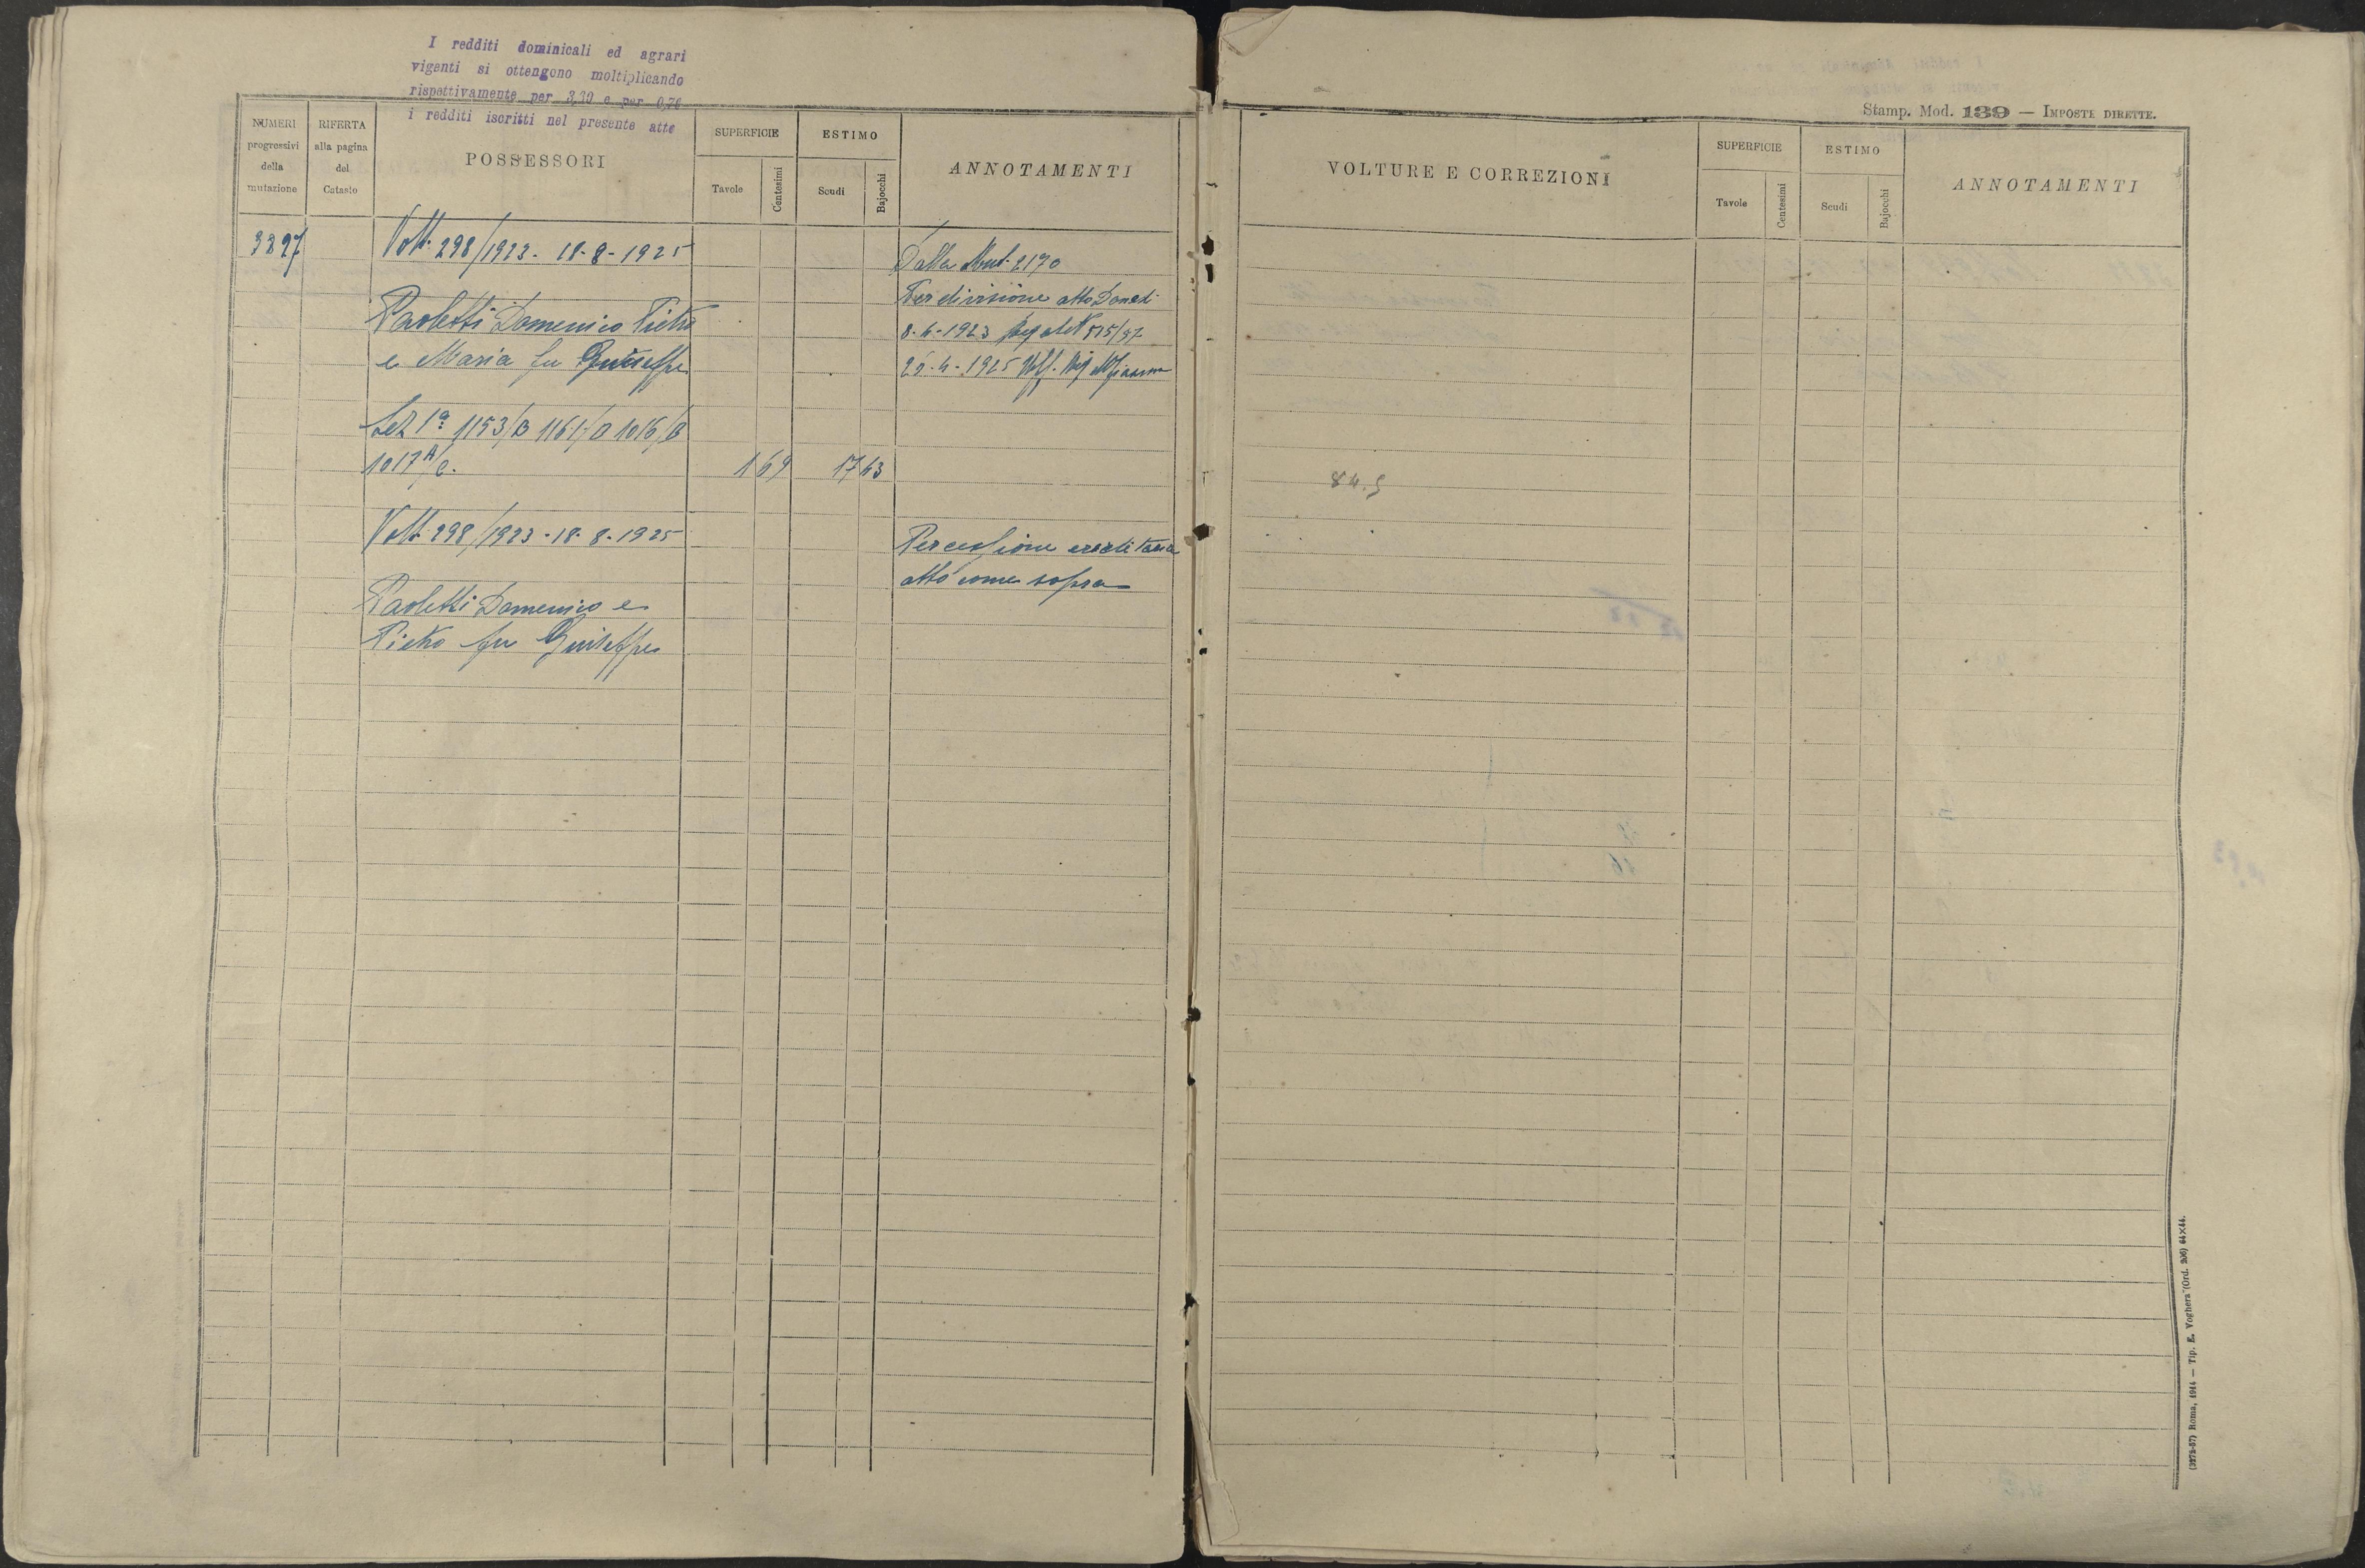 I redditi dominicali ed agrari
vigenti si ottengono moltiplicando
rispettivamente per 3,30 e per 0,76
i redditi iscritti nel presente atte
NUMERI
progressivi
della
mutazione
RIFERTA
alla pagina
del
Catasto
POSSESSORI
SUPERFICIE
Tavole
Centesimi
ESTIMO
Scudi
Bajocchi
ANNOTAMENTI
3897 Volt. 298/1923 - 18-8-1925 Dalla Mut. 2170
Per divisione atto Donati
Paoletti Domenico Pietro 8-4-1923
e Maria fu Giuseppe 25-4-1925
Sez 1ª 1153/B 1161/D 1016/B
1017A/C. 1 69 17 43
Volt. 298/1923 - 18-8-1925 Per cessione ereditaria
atto come sopra
Paoletti Domenico e
Pietro fu Giuseppe
Stamp. Mod. 139 — IMPOSTE DIRETTE.
VOLTURE E CORREZIONI
SUPERFICIE
Tavole
Centesimi
ESTIMO
Scudi
Bajocchi
ANNOTAMENTI
84.5
(3172-57) Roma, 1914 — Tip. E. Voghera (Ord. 206) 64X44.